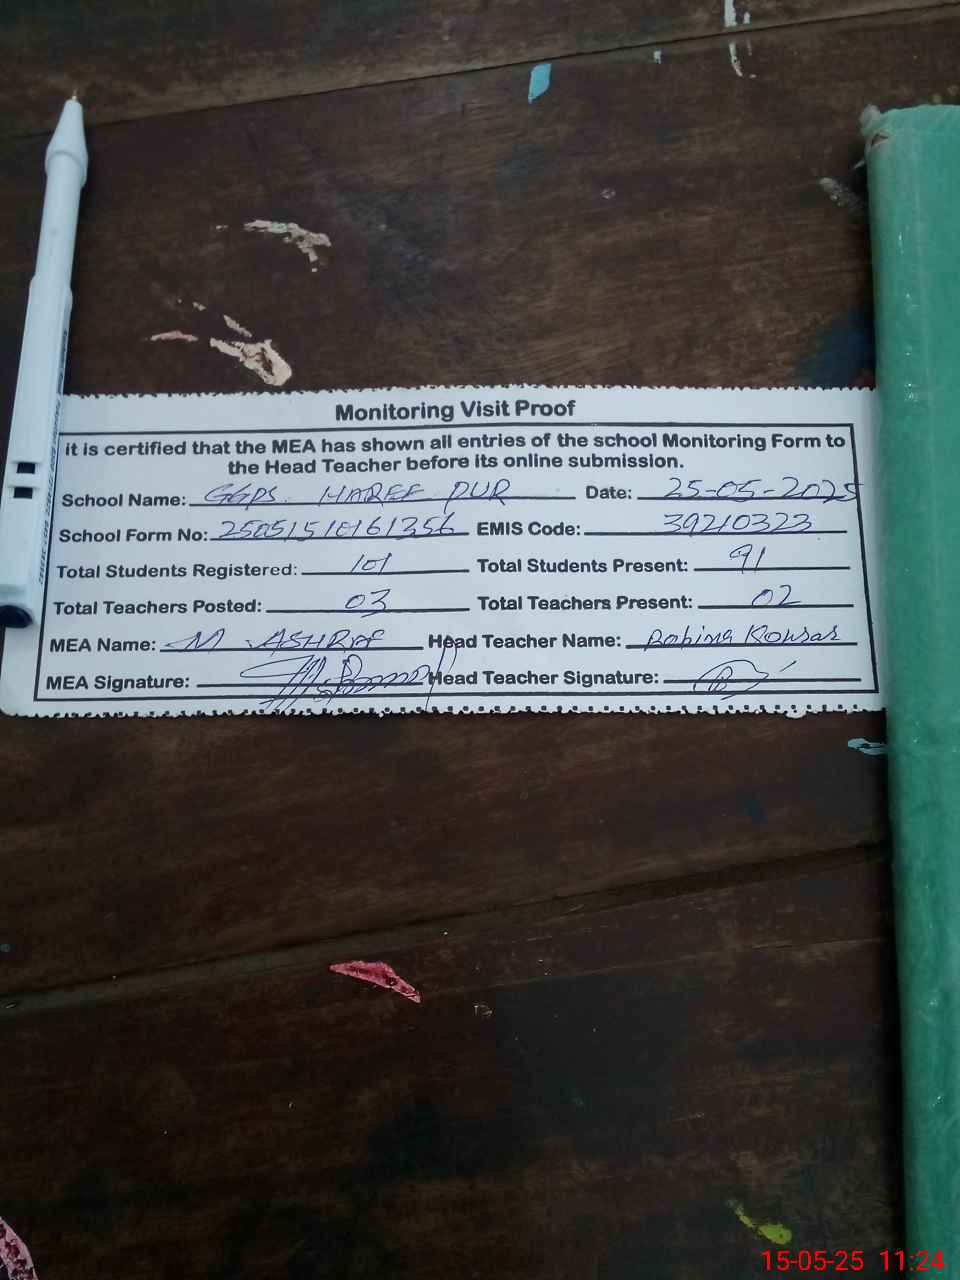 Monitoring Visit Proof
it is certified that the MEA has shown all entries of the school Monitoring Form to
the Head Teacher before its online submission.
School Name: GGPS HAREF PUR Date: 25-05-2025
School Form No: 25051510161356 EMIS Code: 39210323
Total Students Registered: 101 Total Students Present: 91
Total Teachers Posted: 03 Total Teachers Present: 02
MEA Name: M ASHRAF Head Teacher Name: Robina Kousar
MEA Signature: Head Teacher Signature:
15-05-25 11:24